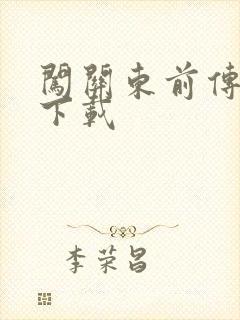 闖關東前傳
下載
李荣昌